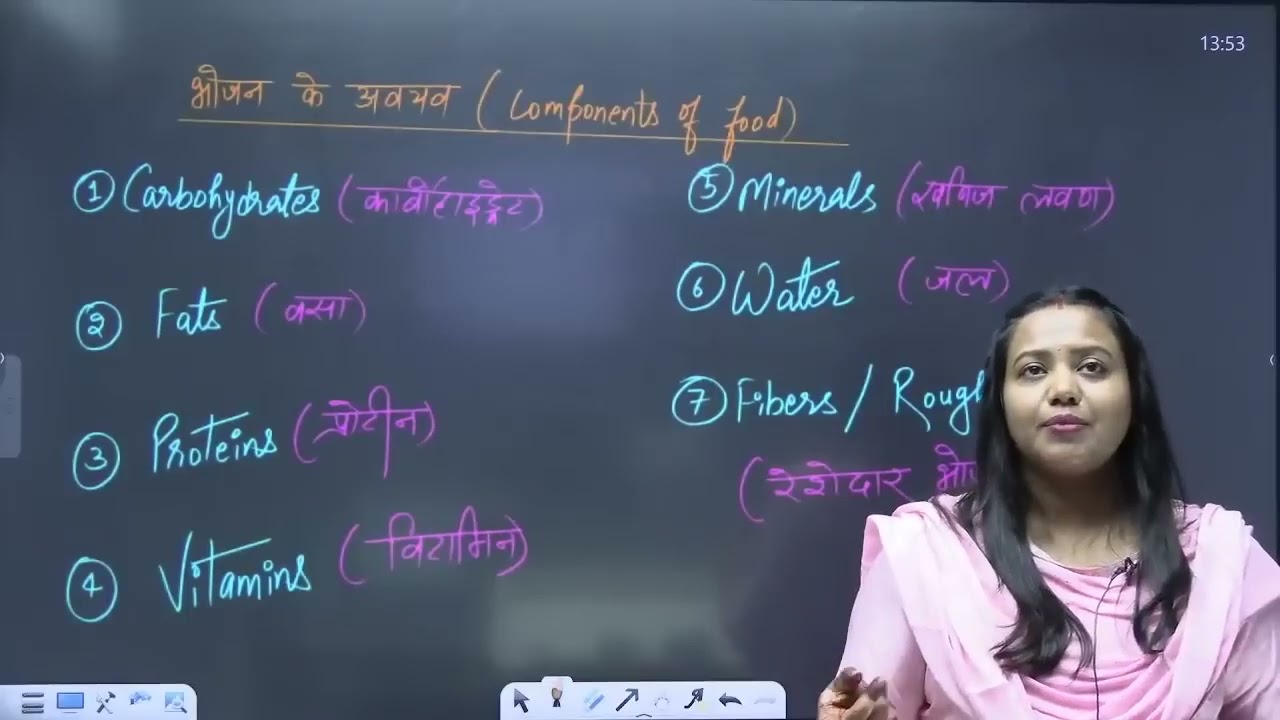 13:53
भोजन के अवयव (Components of food)
① Carbohydrates (कार्बोहाइड्रेट)
② Fats (वसा)
③ Proteins (प्रोटीन)
④ Vitamins (विटामिन)
⑤ Minerals (खनिज लवण)
⑥ Water (जल)
⑦ Fibers /
(रेशेदार